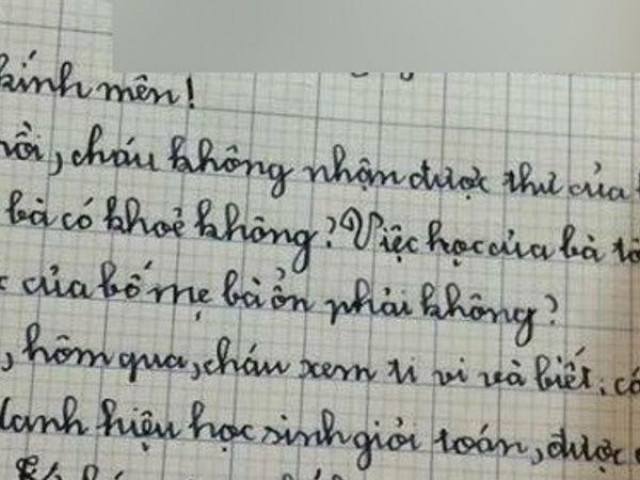 kính mến!
rồi, cháu không nhận được thư của
bà có khoẻ không? Việc học của bà tố
của bố mẹ bà ổn phải không?
, hôm qua, cháu xem ti vi và biết: có
danh hiệu học sinh giỏi toán, được